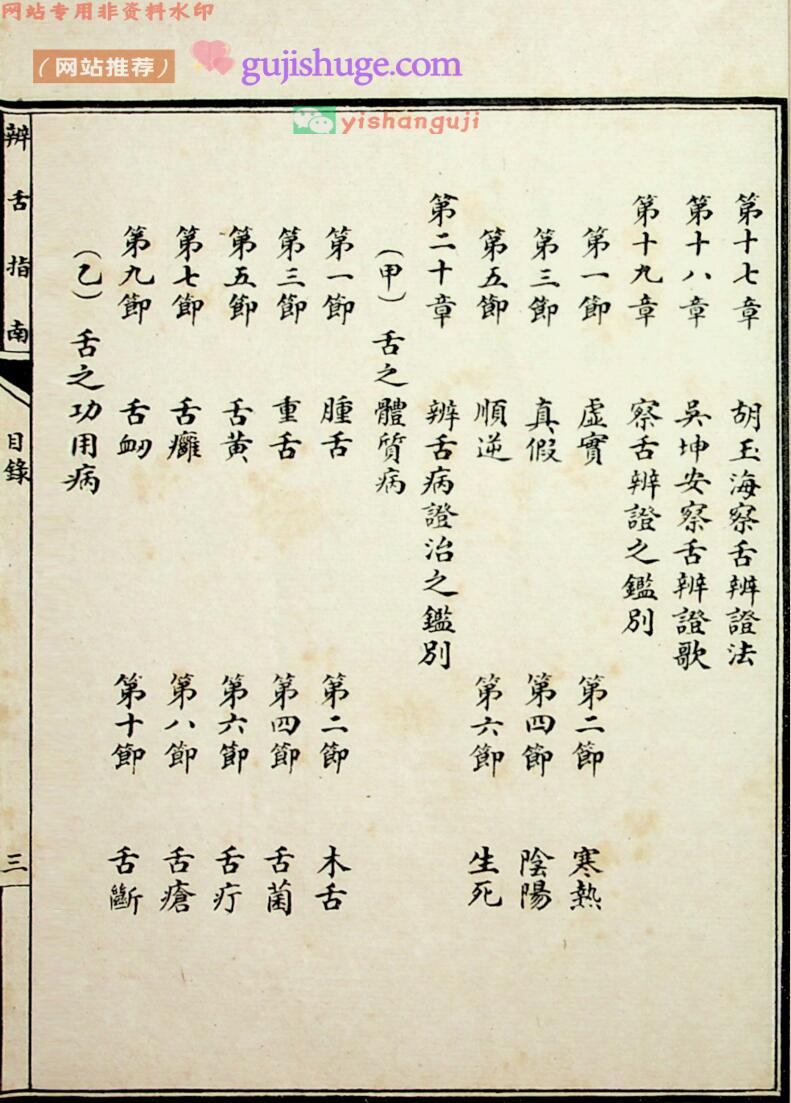 网站专用非资料水印
（网站推荐）
gujishuge.com
yishanguji
第十七章　胡玉海察舌辨證法
第十八章　吳坤安察舌辨證歌
第十九章　察舌辨證之鑑別
第一節　虛實　第二節　寒熱
第三節　真假　第四節　陰陽
第五節　順逆　第六節　生死
第二十章　辨舌病證治之鑑別
（甲）舌之體質病
第一節　腫舌　第二節　木舌
第三節　重舌　第四節　舌菌
第五節　舌黃　第六節　舌疔
第七節　舌癰　第八節　舌瘡
第九節　舌衂　第十節　舌斷
（乙）舌之功用病
辨舌指南　目錄　三